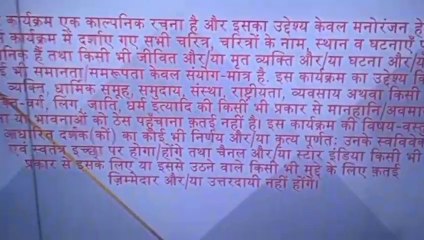 कार्यक्रम एक काल्पनिक रचना है और इसका उद्देश्य केवल मनोरंजन है
कार्यक्रम में दर्शाए गए सभी चरित्र, चरित्रों के नाम, स्थान व घटनाएं
हैं तथा किसी भी जीवित और/या मृत व्यक्ति और/या घटना और/या
भी समानता/समरूपता केवल संयोग-मात्र है. इस कार्यक्रम का उद्देश्य
व्यक्ति, धार्मिक समूह, समुदाय, संस्था, राष्ट्रीयता, व्यवसाय अथवा किसी
वर्ग, लिंग, जाति, धर्म इत्यादि की किसी भी प्रकार से मानहानि/अवमा
या भावनाओं को ठेस पहुँचाना क़तई नहीं है। इस कार्यक्रम की विषय-वस्तु
आधारित दर्शक(कों) का कोई भी निर्णय और/या कृत्य पूर्णतः उनके स्वविवेक
एवं स्वतंत्र इच्छा पर होगा/होंगे तथा चैनल और/या स्टार इंडिया किसी भी
प्रकार से इसके लिए या इससे उठने वाले किसी भी मुद्दे के लिए क़तई
ज़िम्मेदार और/या उत्तरदायी नहीं होंगे।